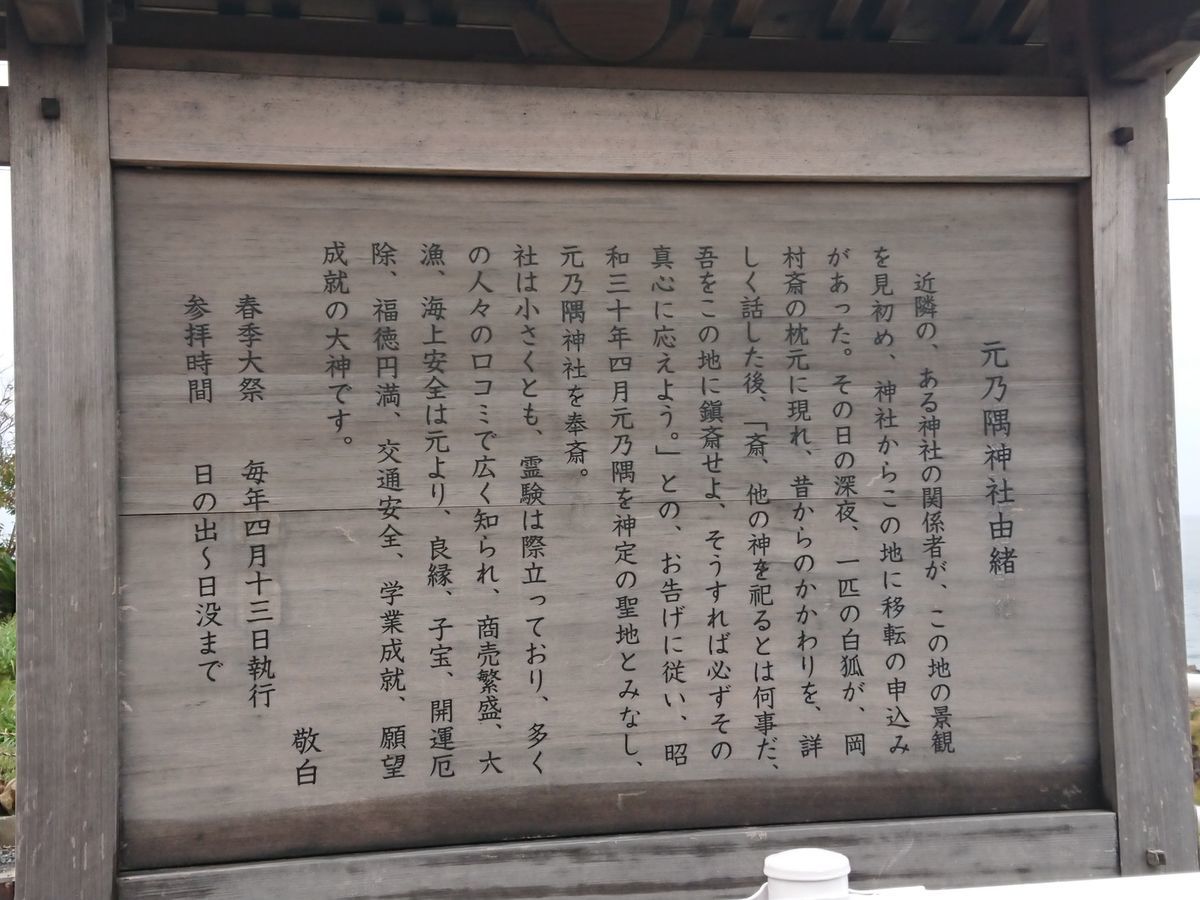 元乃隅神社由緒
近隣の、ある神社の関係者が、この地の景観
を見初め、神社からこの地に移転の申込み
があった。その日の深夜、一匹の白狐が、岡
村斎の枕元に現れ、昔からのかかわりを、詳
しく話した後、「斎、他の神を祀るとは何事だ、
吾をこの地に鎮斎せよ、そうすれば必ずその
真心に応えよう。」との、お告げに従い、昭
和三十年四月元乃隅を神定の聖地とみなし、
元乃隅神社を奉斎。
社は小さくとも、霊験は際立っており、多く
の人々の口コミで広く知られ、商売繁盛、大
漁、海上安全は元より、良縁、子宝、開運厄
除、福徳円満、交通安全、学業成就、願望
成就の大神です。
敬白
春季大祭 毎年四月十三日執行
参拝時間 日の出～日没まで